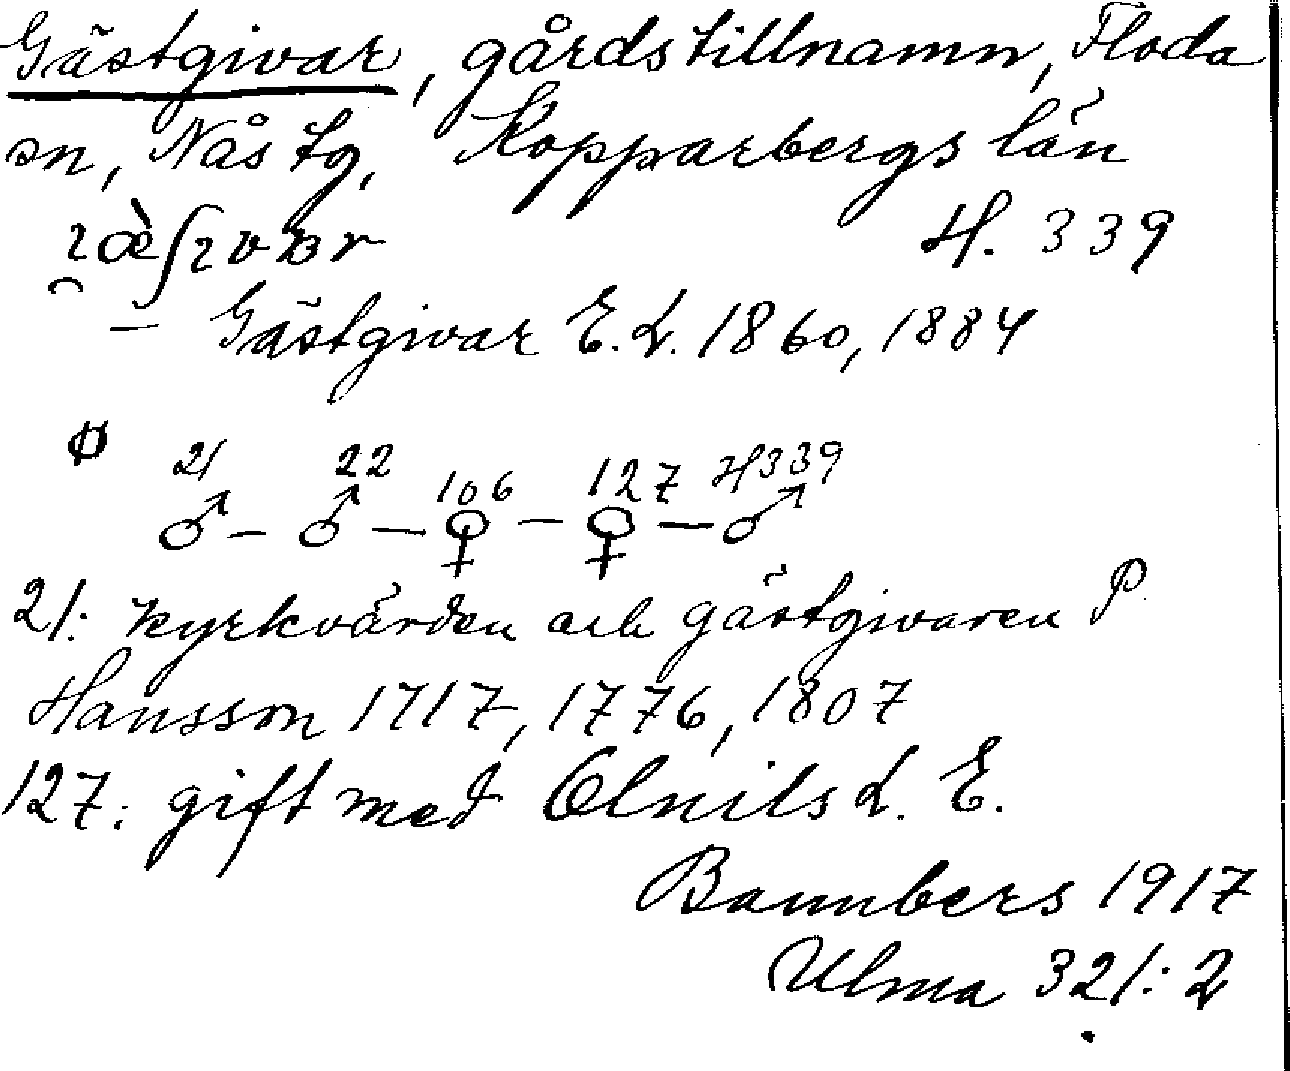 Gästgivar, gårdstillnamn, Floda
sn, Nås tg, Kopparbergs län
H. 339
– Gästgivar E.L. 1860, 1884
21 22 106 127 H339
♂ – ♂ – ♀ – ♀ – ♂
21: kyrkvärden och gästgivaren P.
Hansson 1717, 1776, 1807
127: gift med Olnils L. E.
Bannbers 1917
Ulma 321:2